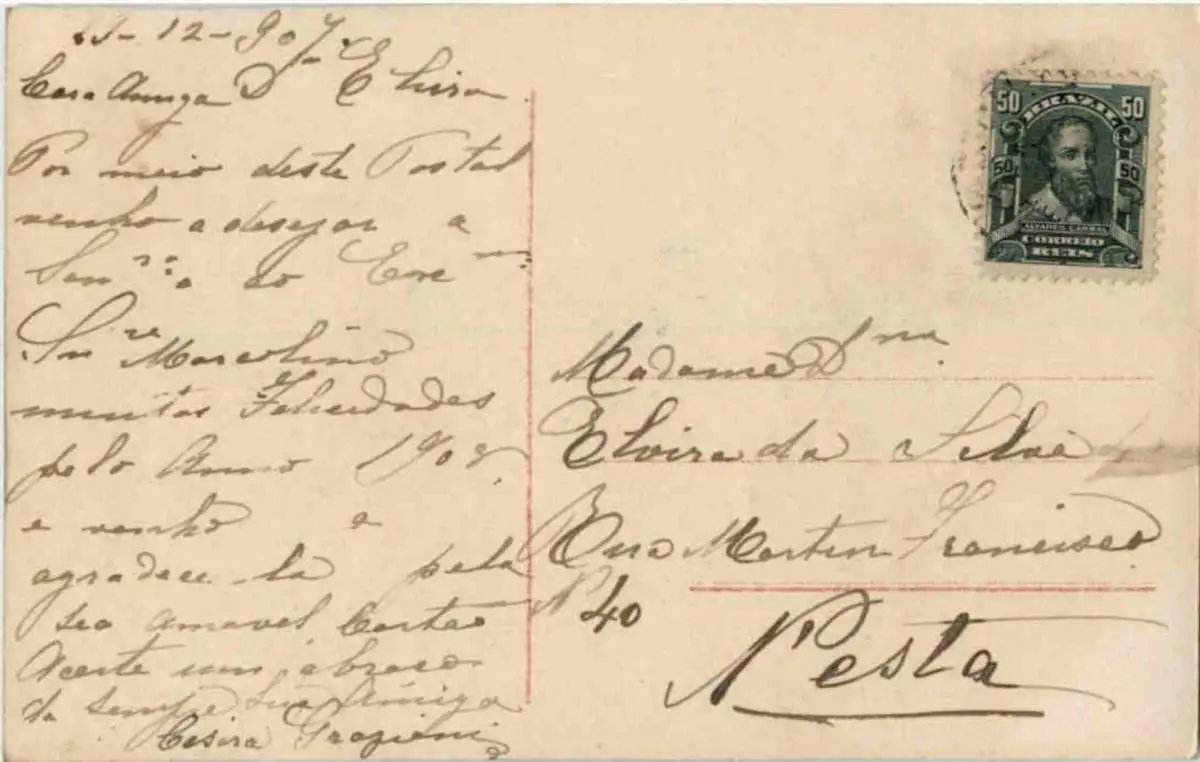 -12-907
Cara Amiga D Elvira
Por meio deste Postal
venho a desejar a
Senra e ao Exmo
Snre Marcolino
muitas Felicidades
pelo Anno 1908,
e venho a
agradece la pela
seo Amavel Cartão
Aceite um abraço
da sempre sua Amiga
Cesira Graziani
50 BRAZIL 50
50 50
ALVARES CABRAL
CORREIO
REIS
Madame Dna
Elvira da Silva
Rua Martin Francisco
N 40
Nesta